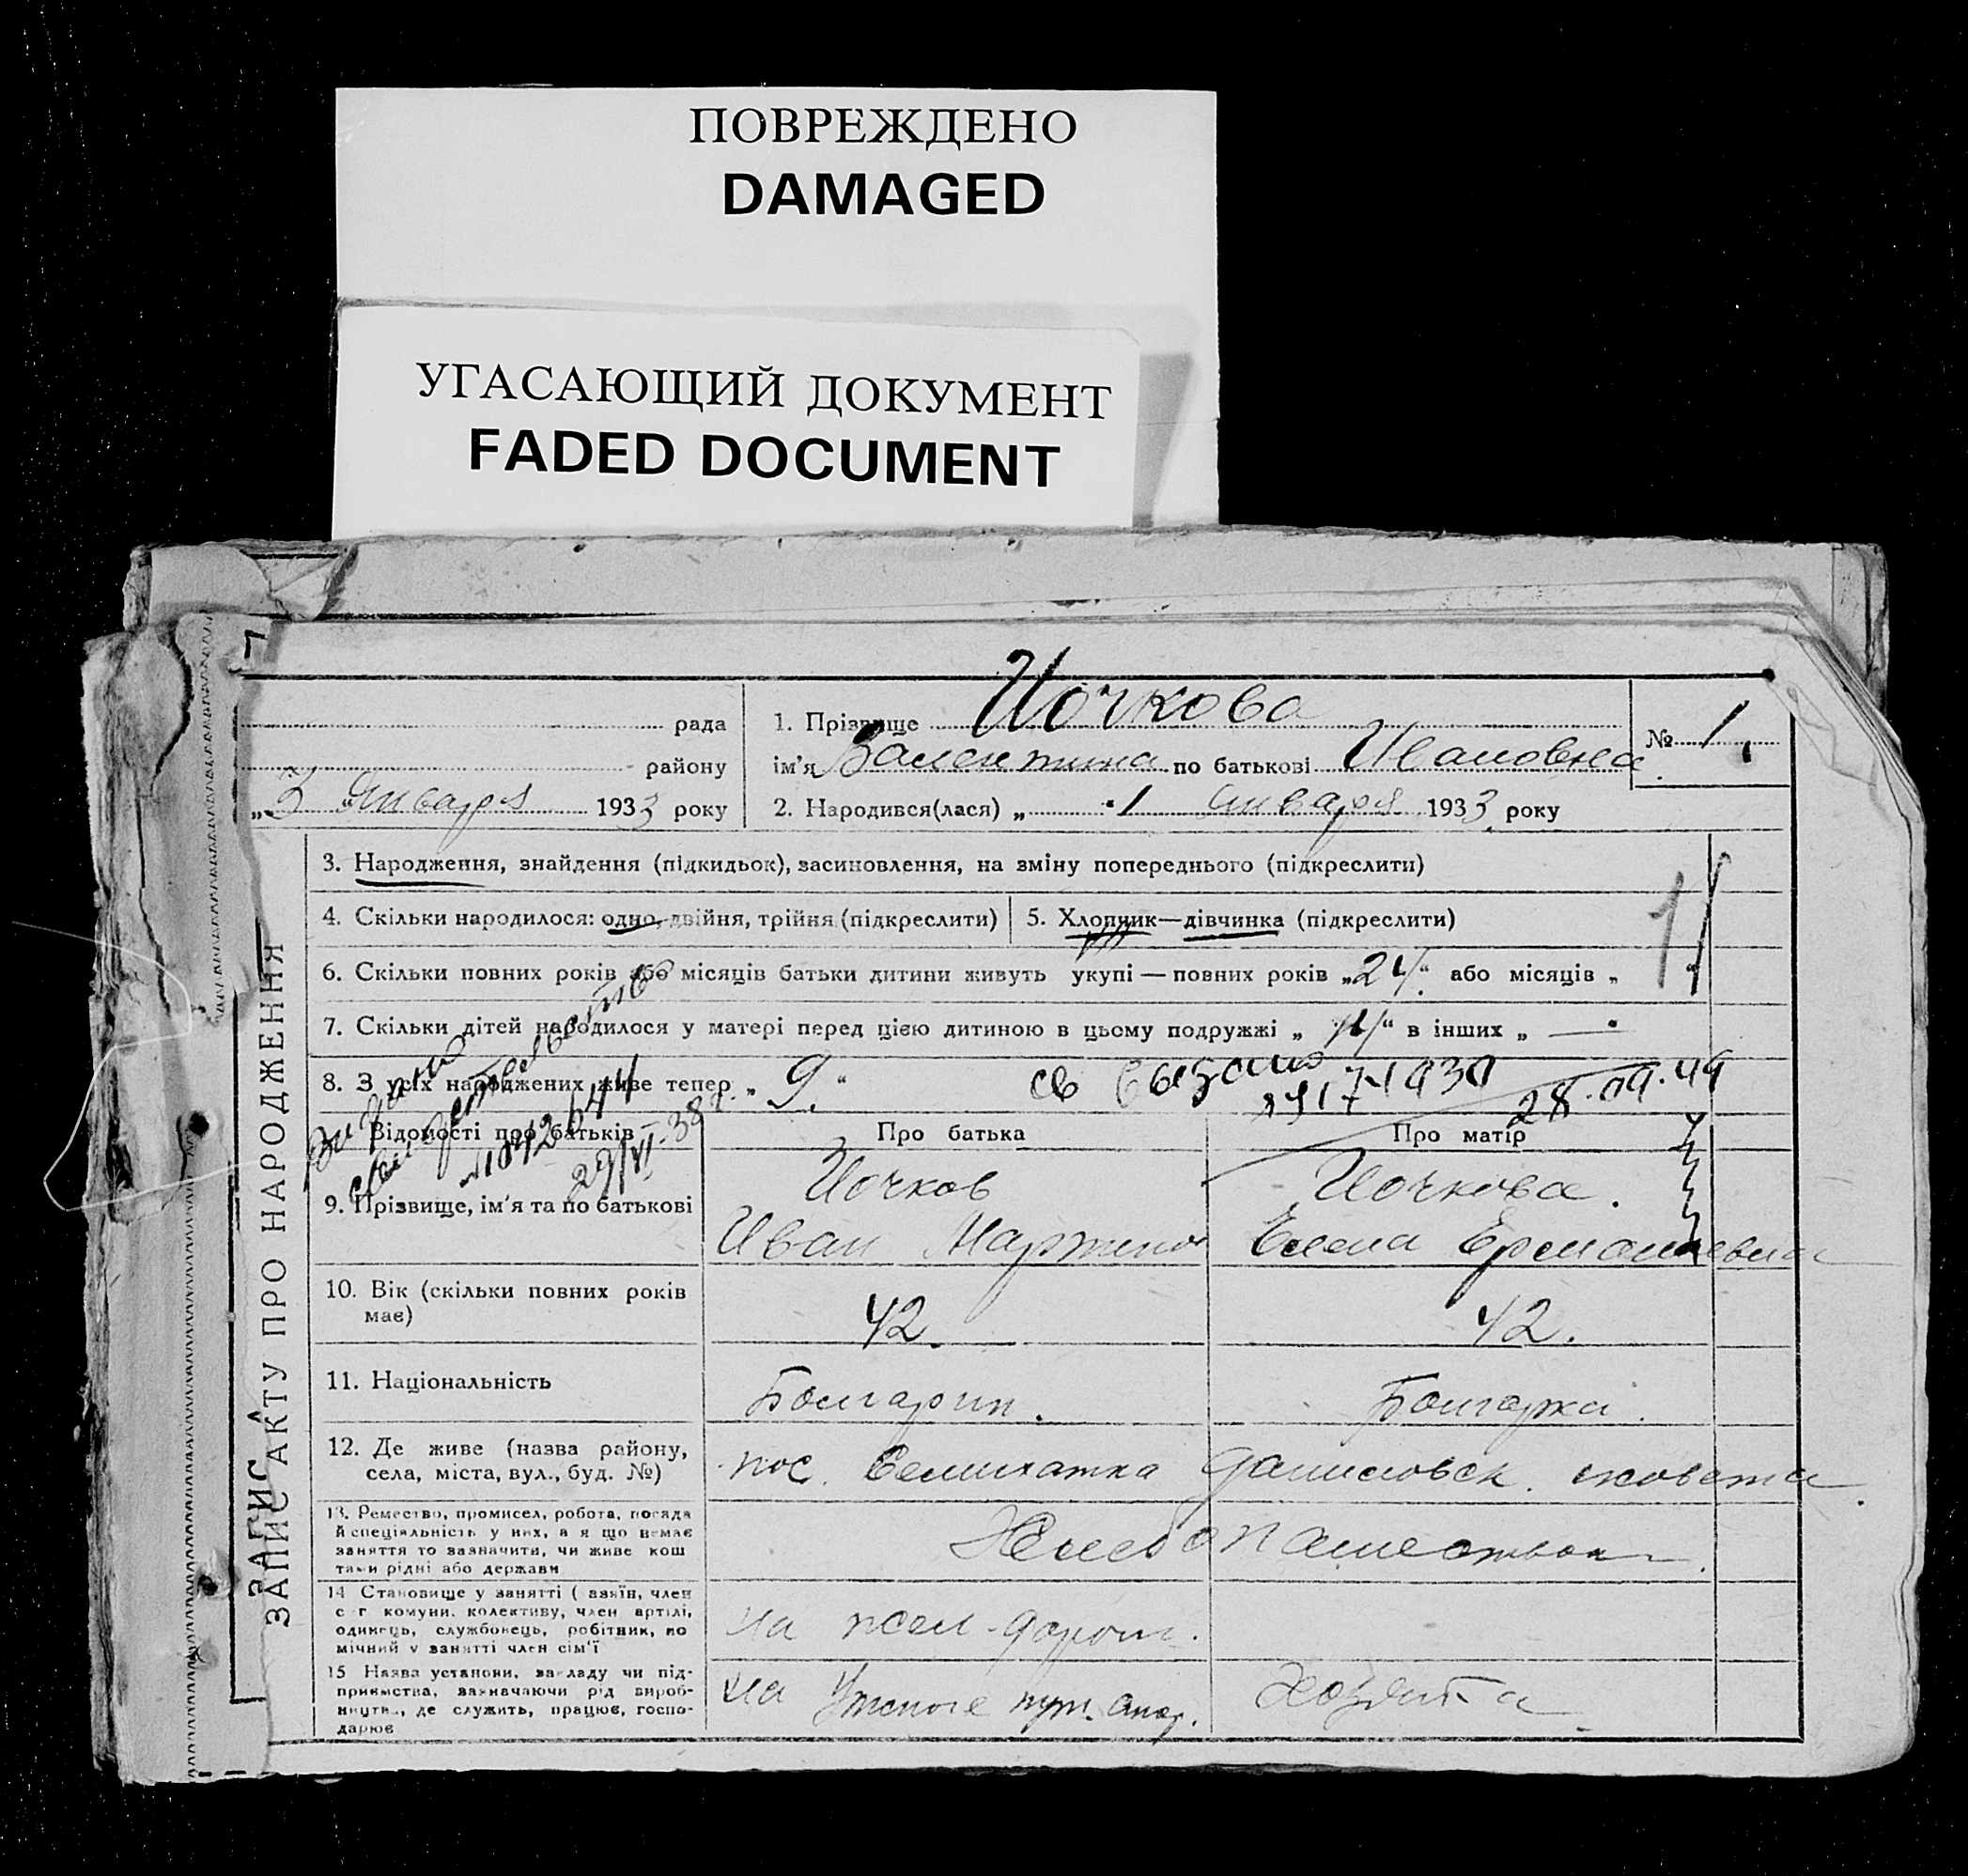 ПОВРЕЖДЕНО
DAMAGED
УГАСАЮЩИЙ ДОКУМЕНТ
FADED DOCUMENT
рада
району
„3 Января 1933 року
1. Прізвище Иочкова
ім'я Валентина по батькові Ивановна
2. Народився(лася) „ 1 Января 1933 року
№ 1.
ЗАПИС АКТУ ПРО НАРОДЖЕННЯ
3. Народження, знайдення (підкидьок), засиновлення, на зміну попереднього (підкреслити)
4. Скільки народилося: одно, двійня, трійня (підкреслити)
5. Хлопчик—дівчинка (підкреслити)
6. Скільки повних років або місяців батьки дитини живуть укупі — повних років „24“ або місяців „ “
7. Скільки дітей народилося у матері перед цією дитиною в цьому подружжі „ “ в інших „ —
8. З усіх народжених живе тепер „ 9. “
28.09.49
Відомості про батьків
Про батька
Про матір
9. Прізвище, ім'я та по батькові
Иочков
Иван
Иочкова.
Елена
10. Вік (скільки повних років має)
42.
42.
11. Національність
Болгарин.
Болгарка.
12. Де живе (назва району, села, міста, вул., буд. №)
пос. Семихатка
13. Ремество, промисел, робота, посада
й спеціяльність у них, а якщо немає
заняття то зазначити, чи живе кош
тами рідні або держави
Хлебопашеством
14 Становище у занятті (хазяїн, член
с г комуни, колективу, член артілі,
одинець, службовець, робітник, по
мічний у занятті член сім'ї
на жел. дорог.
15 Назва установи, закладу чи під-
приємства, зазначаючи рід вироб-
ництва, де служить, працює, госпо-
дарює
на
Хозяйка